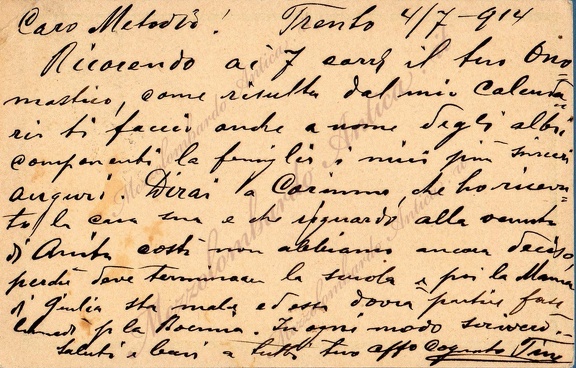 Caro Metodio! Trento 4/7-914
Ricorendo ai 7 corr. il tuo Ono
mastico, come risulta dal mio Calenda
rio ti faccio anche a nome degli altri
componenti la famiglia i miei più sinceri
auguri. Dirai a Corinna che ho ricevu
to la cara sua e che riguardo alla venuta
di Anita costì non abbiamo ancora deciso
perchè deve terminare la scuola e poi la Mamma
di Giulia sta male ed essa dovrà partire forse
lunedì p. la Boemia. In ogni modo scriverò.-
Saluti e baci a tutti tuo affo Cognato
Mezzolombardo Antica